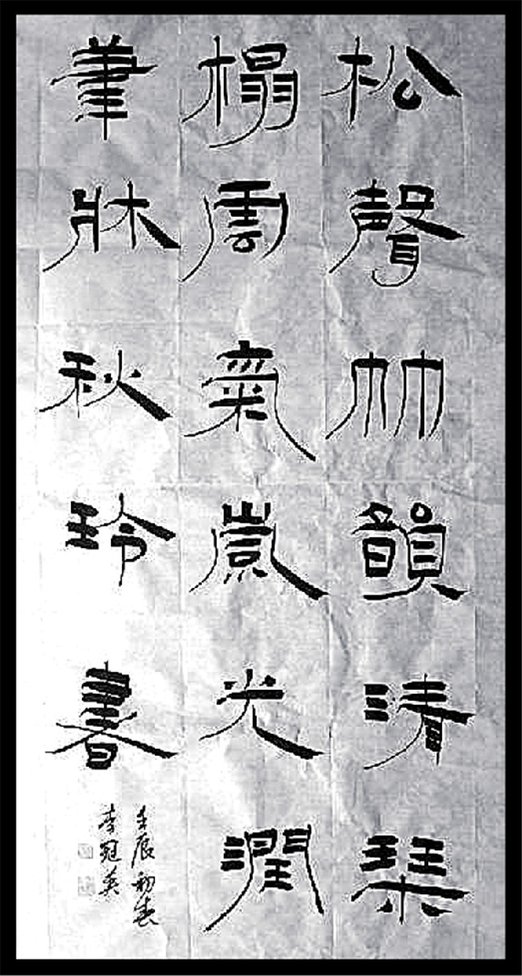 松聲竹韻清琹
榻雲氣嵐光潤
筆牀秋玲書
壬辰初春
李冠英